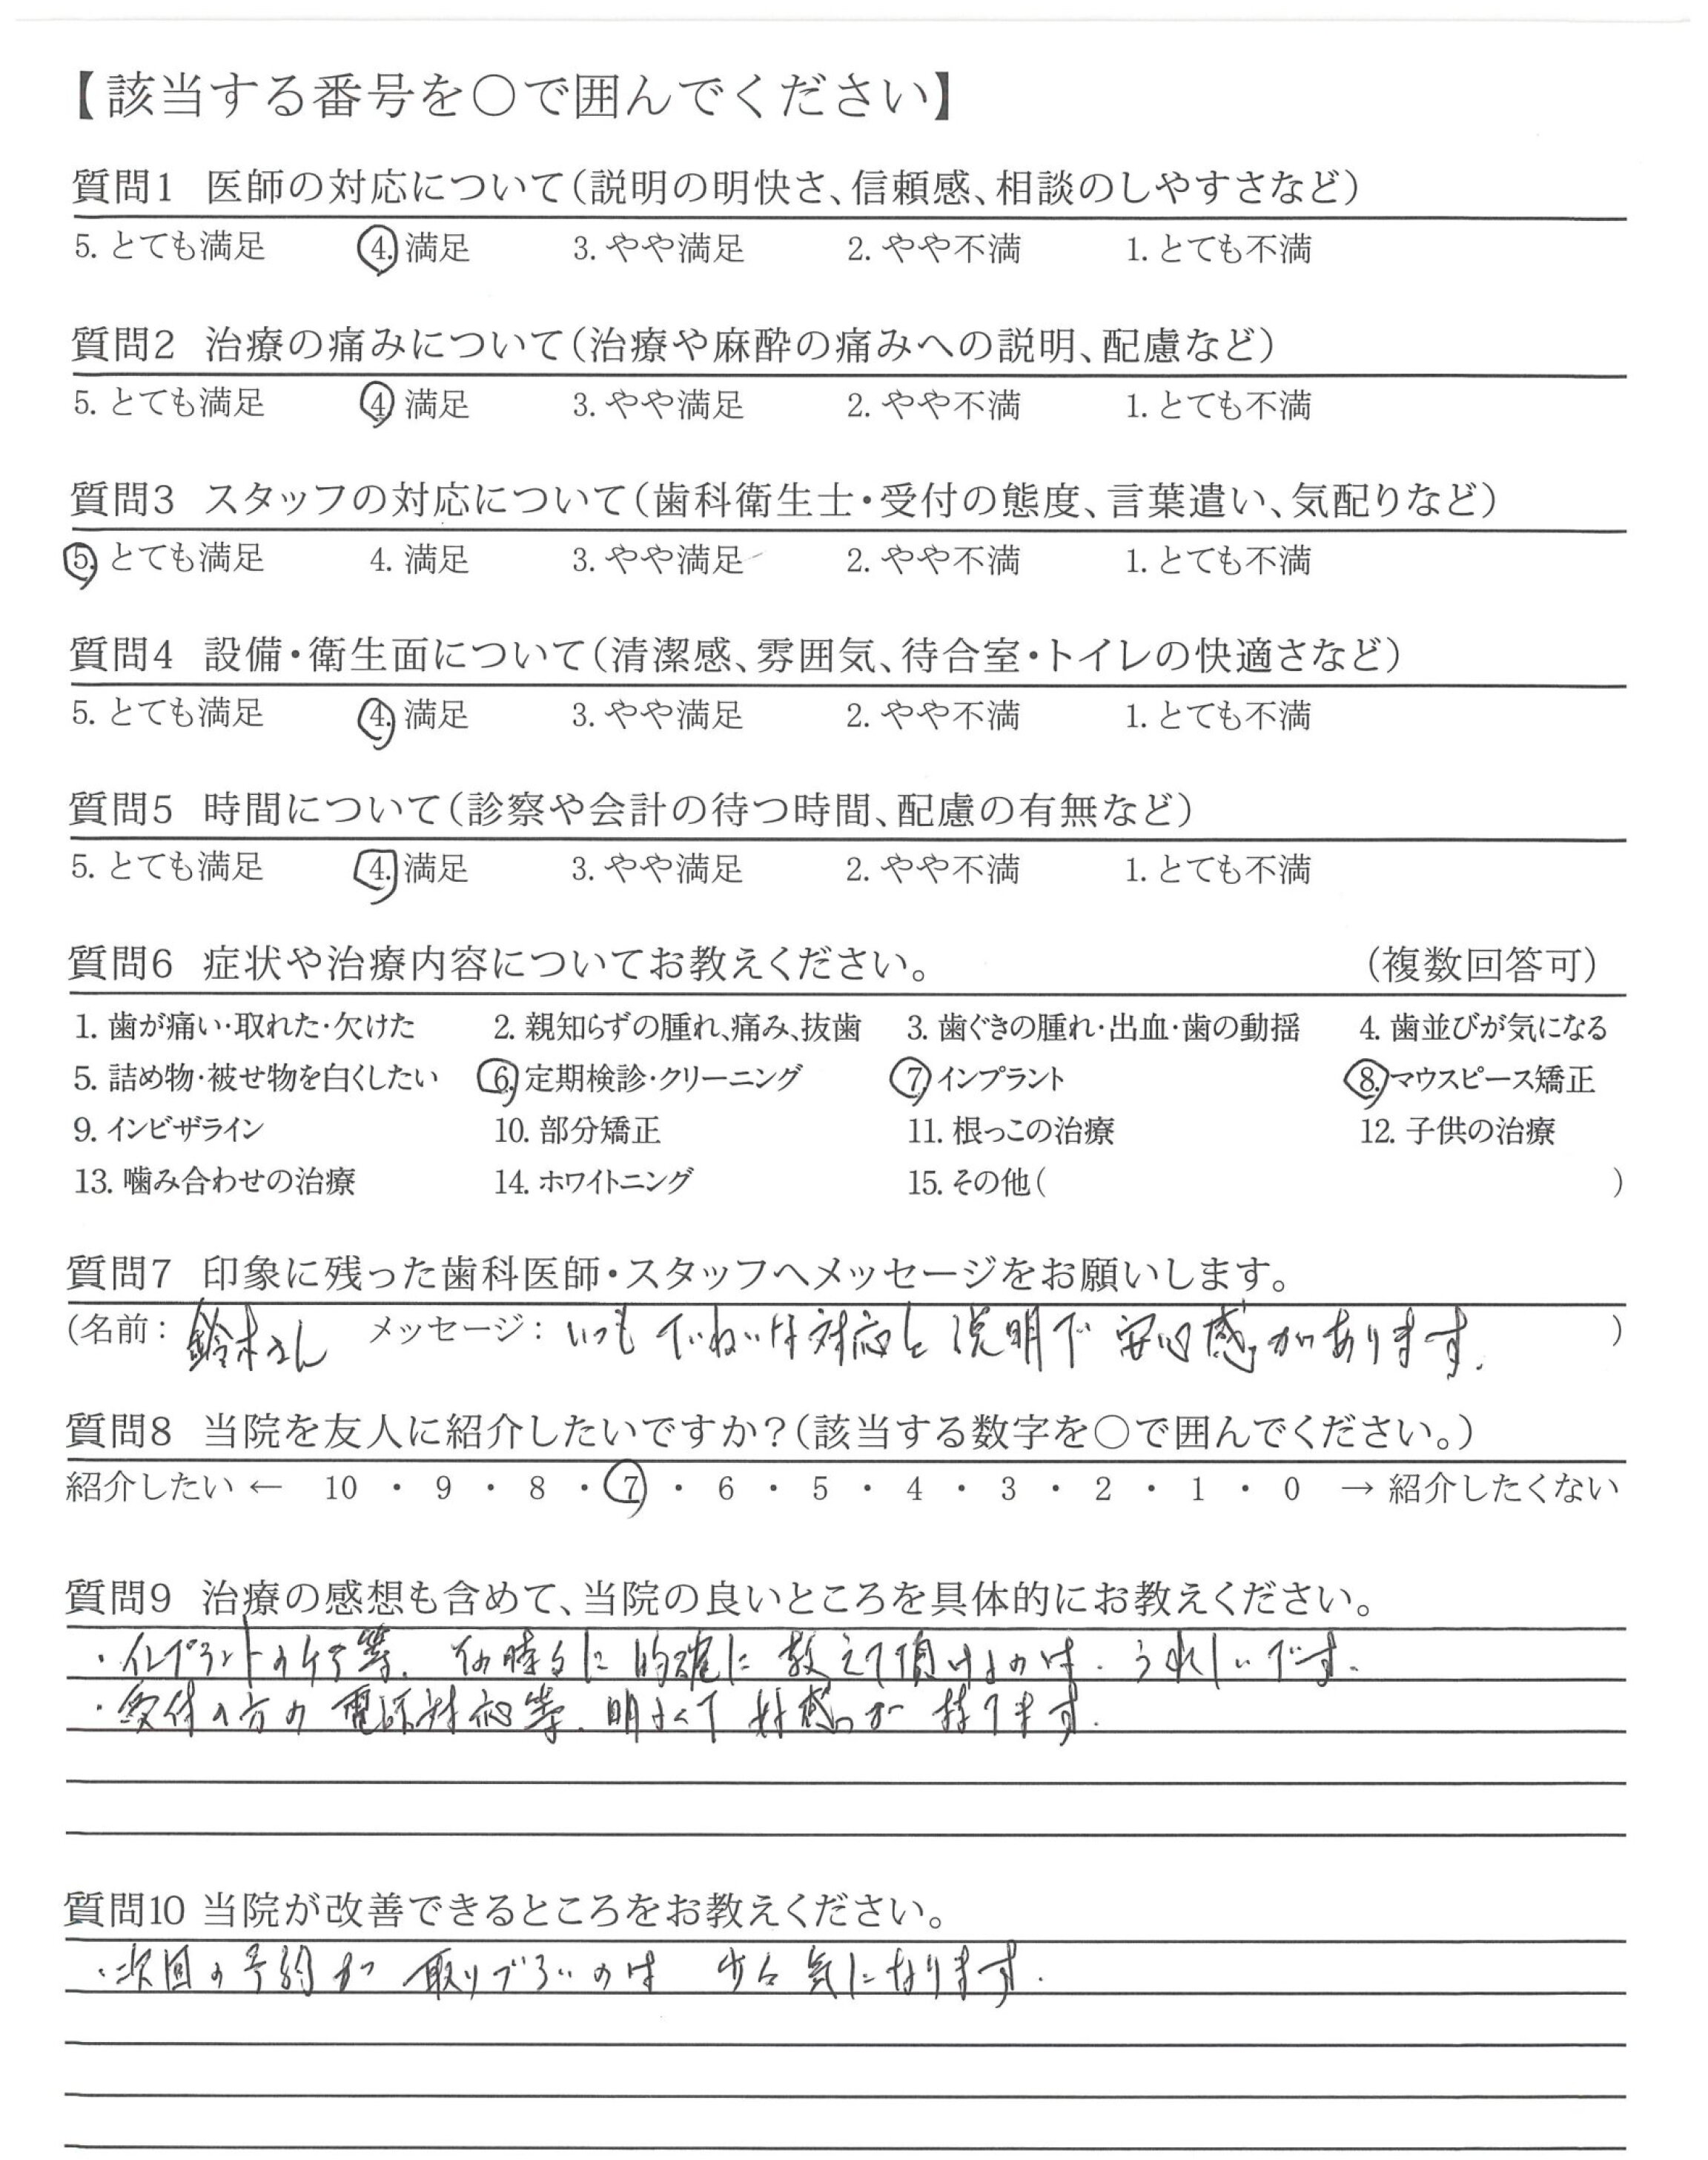 【該当する番号を○で囲んでください】
質問1 医師の対応について(説明の明快さ、信頼感、相談のしやすさなど)
5. とても満足 4. 満足 3. やや満足 2. やや不満 1. とても不満
質問2 治療の痛みについて(治療や麻酔の痛みへの説明、配慮など)
5. とても満足 4. 満足 3. やや満足 2. やや不満 1. とても不満
質問3 スタッフの対応について(歯科衛生士・受付の態度、言葉遣い、気配りなど)
5. とても満足 4. 満足 3. やや満足 2. やや不満 1. とても不満
質問4 設備・衛生面について(清潔感、雰囲気、待合室・トイレの快適さなど)
5. とても満足 4. 満足 3. やや満足 2. やや不満 1. とても不満
質問5 時間について(診察や会計の待つ時間、配慮の有無など)
5. とても満足 4. 満足 3. やや満足 2. やや不満 1. とても不満
質問6 症状や治療内容についてお教えください。 (複数回答可)
1. 歯が痛い・取れた・欠けた 2. 親知らずの腫れ、痛み、抜歯 3. 歯ぐきの腫れ・出血・歯の動揺 4. 歯並びが気になる
5. 詰め物・被せ物を白くしたい 6. 定期検診・クリーニング 7. インプラント 8. マウスピース矯正
9. インビザライン 10. 部分矯正 11. 根っこの治療 12. 子供の治療
13. 噛み合わせの治療 14. ホワイトニング 15. その他( )
質問7 印象に残った歯科医師・スタッフへメッセージをお願いします。
(名前: 鈴木さん メッセージ: いつも ていねいな対応と説明で 安心感があります. )
質問8 当院を友人に紹介したいですか?(該当する数字を○で囲んでください。)
紹介したい ← 10 ・ 9 ・ 8 ・ 7 ・ 6 ・ 5 ・ 4 ・ 3 ・ 2 ・ 1 ・ 0 → 紹介したくない
質問9 治療の感想も含めて、当院の良いところを具体的にお教えください。
・インプラントのケア等、その時々に的確に教えて頂けるのは、うれしいです。
・受付の方の電話対応等、明るくて好感が持てます.
質問10 当院が改善できるところをお教えください。
・次回の予約が取りづらいのは 少々気になります.